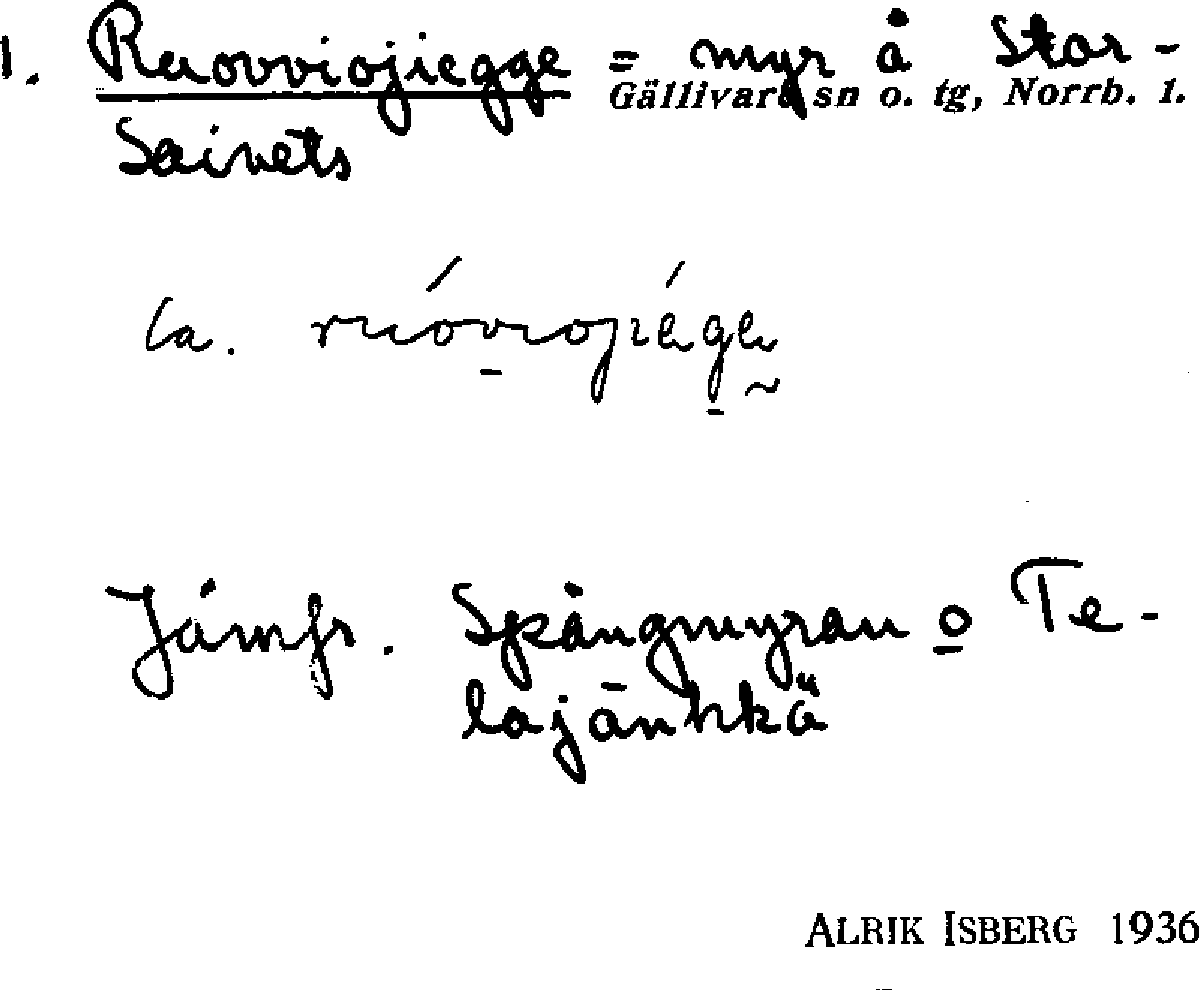 1. Ruovviojiegge = myr å Stor-
Gällivare sn o. tg, Norrb. l.
Saivets
la. ruóvviojiége
Jämfr. Spångmyran o Te-
lajänkkä
ALRIK ISBERG 1936